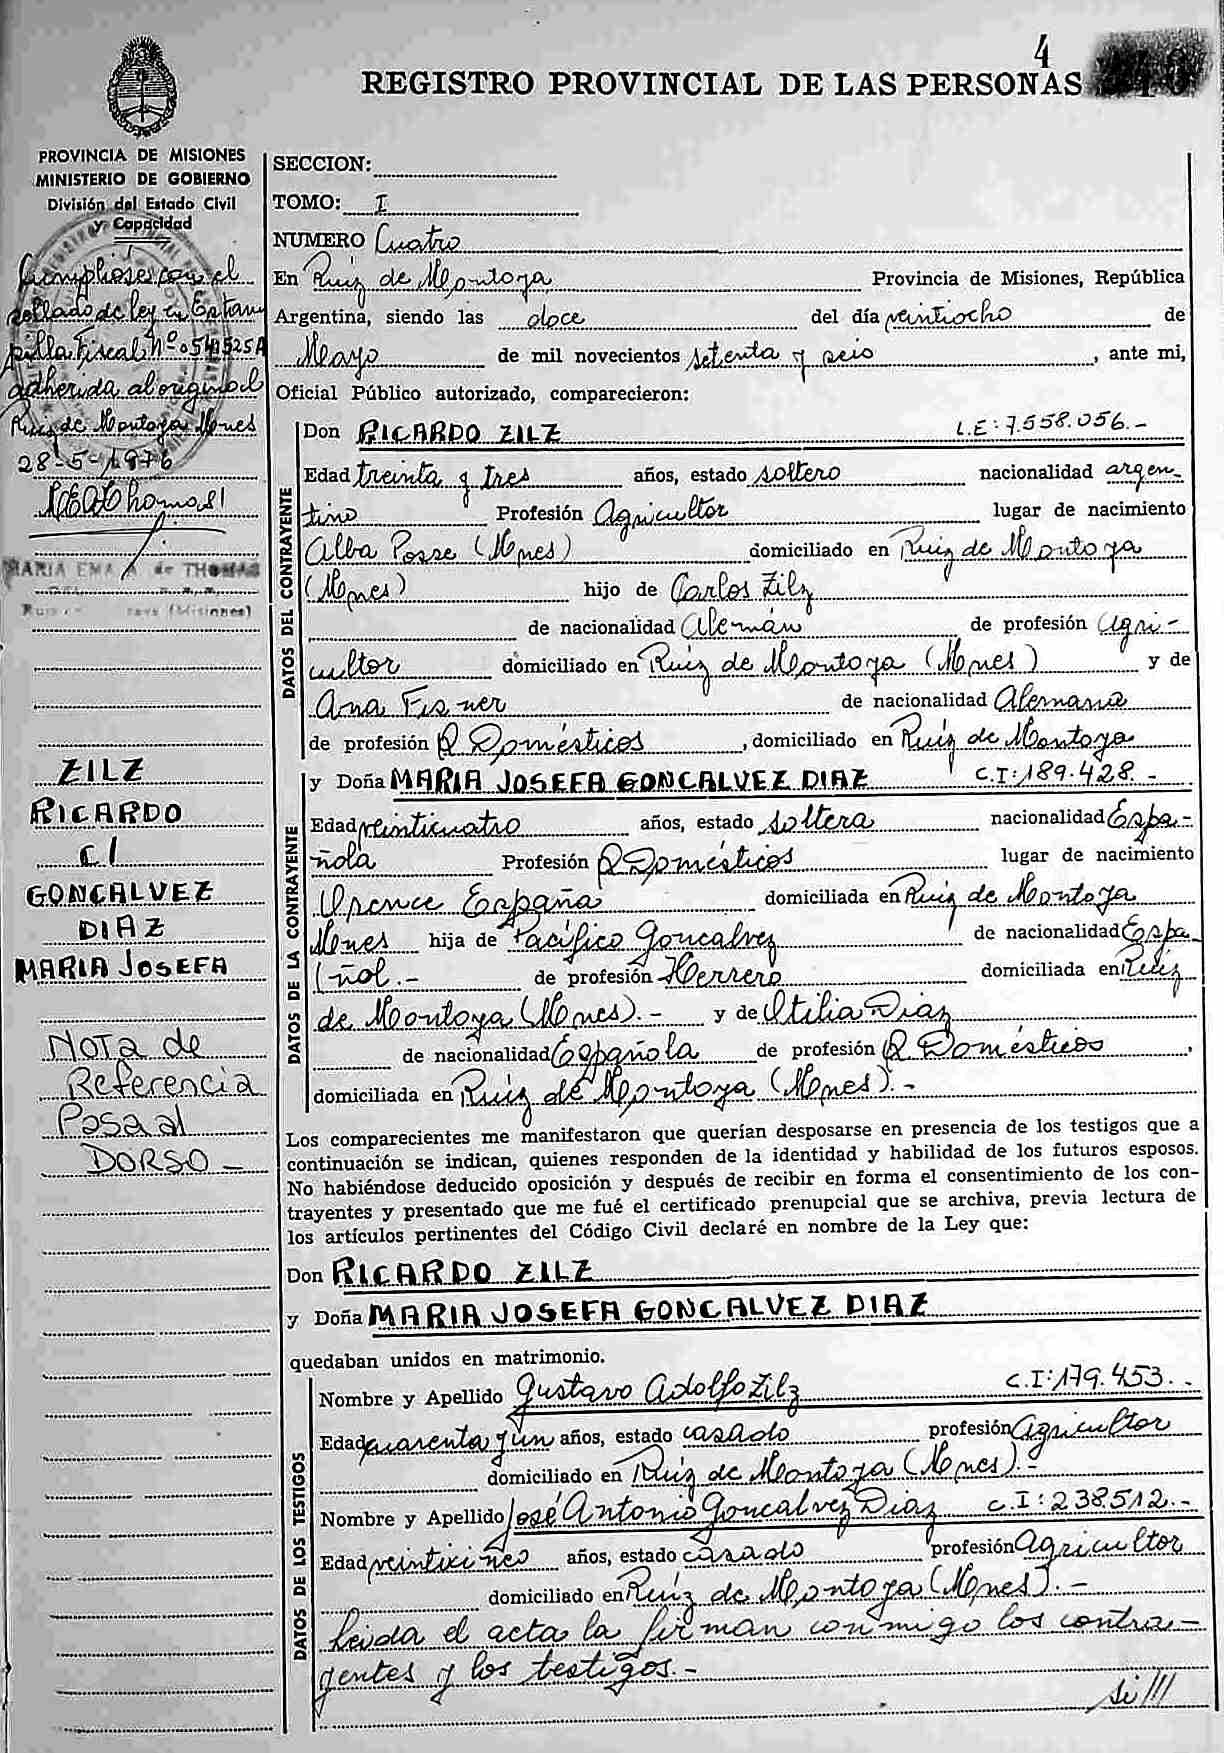 4
REGISTRO PROVINCIAL DE LAS PERSONAS
PROVINCIA DE MISIONES
MINISTERIO DE GOBIERNO
División del Estado Civil
y Capacidad
Cumpliose con el
sellado de ley en Estam
pilla Fiscal Nº
adherida al original
Ruiz de Montoya Mnes
28-5-1976
MARIA EMA A. de THOMAS
(Misiones)
ZILZ
RICARDO
C/
GONCALVEZ
DIAZ
MARIA JOSEFA
NOTA de
Referencia
Pasa al
DORSO -
SECCION:
TOMO: I
NUMERO Cuatro
En Ruiz de Montoya Provincia de Misiones, República
Argentina, siendo las doce del día veintiocho de
Mayo de mil novecientos setenta y seis, ante mi,
Oficial Público autorizado, comparecieron:
DATOS DEL CONTRAYENTE
Don RICARDO ZILZ L.E: 7.558.056.-
Edad treinta y tres años, estado soltero nacionalidad argen-
tino Profesión Agricultor lugar de nacimiento
Alba Posse (Mnes) domiciliado en Ruiz de Montoya
(Mnes) hijo de Carlos Zilz
de nacionalidad Alemán de profesión Agri-
cultor domiciliado en Ruiz de Montoya (Mnes) y de
Ana Fisner de nacionalidad Alemana
de profesión Q Domésticos, domiciliado en Ruiz de Montoya
DATOS DE LA CONTRAYENTE
y Doña MARIA JOSEFA GONCALVEZ DIAZ C.I: 189.428.-
Edad veinticuatro años, estado soltera nacionalidad Espa-
ñola Profesión Q Domésticos lugar de nacimiento
Orence España domiciliada en Ruiz de Montoya
Mnes hija de Pacífico Goncalvez de nacionalidad Espa-
ñol.- de profesión Herrero domiciliada en Ruiz
de Montoya (Mnes).- y de Otilia Diaz
de nacionalidad Española de profesión Q Domésticos,
domiciliada en Ruiz de Montoya (Mnes).-
Los comparecientes me manifestaron que querían desposarse en presencia de los testigos que a
continuación se indican, quienes responden de la identidad y habilidad de los futuros esposos.
No habiéndose deducido oposición y después de recibir en forma el consentimiento de los con-
trayentes y presentado que me fué el certificado prenupcial que se archiva, previa lectura de
los artículos pertinentes del Código Civil declaré en nombre de la Ley que:
Don RICARDO ZILZ
y Doña MARIA JOSEFA GONCALVEZ DIAZ
quedaban unidos en matrimonio.
DATOS DE LOS TESTIGOS
Nombre y Apellido Gustavo Adolfo Zilz C.I: 179.453.-
Edad cuarenta y un años, estado casado profesión Agricultor
domiciliado en Ruiz de Montoya (Mnes).-
Nombre y Apellido José Antonio Goncalvez Diaz C.I: 238.512.-
Edad veinticinco años, estado casado profesión Agricultor
domiciliado en Ruiz de Montoya (Mnes).-
Leida el acta la firman conmigo los contra-
yentes y los testigos.-
si///